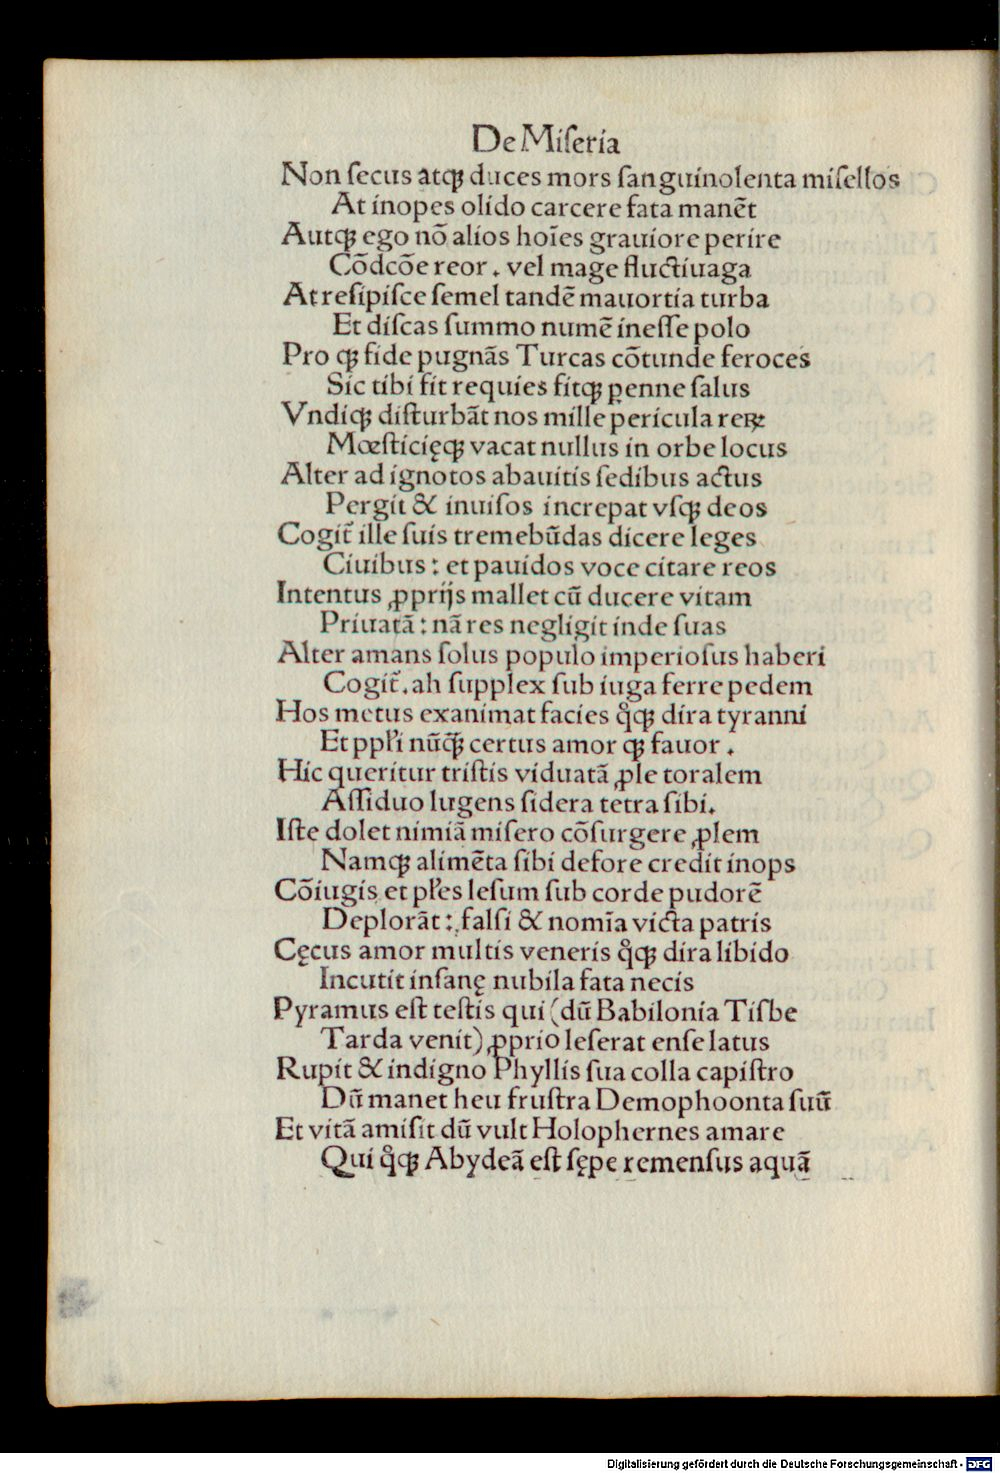 De Miſeria
Non ſecus atqꝫ duces mors ſanguinolenta miſellos
At inopes olido carcere fata manēt
Autqꝫ ego nō alios hoīes grauiore perire
Cōdcōe reor. vel mage fluctiuaga
At reſipiſce ſemel tandē mauortia turba
Et diſcas ſummo numē ineſſe polo
Pro qꝫ fide pugnās Turcas cōtunde feroces
Sic tibi fit requies fitqꝫ ꝑenne ſalus
Vndiqꝫ diſturbāt nos mille pericula reꝝ
Mœſticięqꝫ vacat nullus in orbe locus
Alter ad ignotos abauitis ſedibus actus
Pergit & inuiſos increpat vſqꝫ deos
Cogit᷑ ille ſuis tremebūdas dicere leges
Ciuibus : et pauidos voce citare reos
Intentus ꝓprijs mallet cū ducere vitam
Priuatā : nā res negligit inde ſuas
Alter amans ſolus populo imperioſus haberi
Cogit᷑. ah ſupplex ſub iuga ferre pedem
Hos metus exanimat facies qͦqꝫ dira tyranni
Et ppl'i nūq̄ꝫ certus amor qꝫ fauor.
Hic queritur triſtis viduatā ꝓle toralem
Aſſiduo lugens ſidera tetra ſibi.
Iſte dolet nimiā miſero cōſurgere ꝓlem
Namqꝫ alimēta ſibi defore credit inops
Cōiugis et pl'es leſum ſub corde pudorē
Deplorāt : falſi & nomīa victa patris
Cęcus amor multis veneris qͦqꝫ dira libido
Incutit inſanę nubila fata necis
Pyramus eſt teſtis qui (dū Babilonia Tiſbe
Tarda venit) ꝓprio leſerat enſe latus
Rupit & indigno Phyllis ſua colla capiſtro
Dū manet heu fruſtra Demophoonta ſuū
Et vitā amiſit dū vult Holophernes amare
Qui qͦqꝫ Abydeā eſt ſępe remenſus aquā
Digitalisierung gefördert durch die Deutsche Forschungsgemeinschaft - DFG